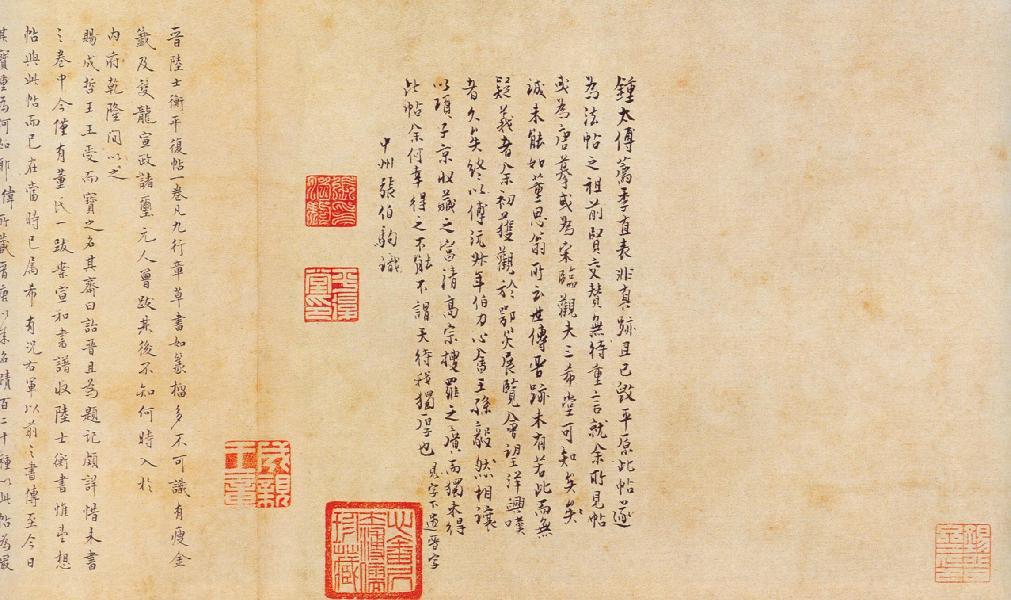 鍾太傅薦季直表非真跡且已毀平原此帖遂
為法帖之祖前賢交贊無待重言就余所見帖
或為唐摹或為宋臨觀夫三希堂可知矣矣
誠未能如董思翁所云世傳晉跡未有若此而無
疑義者余初獲觀於鄂災展覽會望洋興嘆
者久矣終以傅沅叔年伯力心畬王孫毅然相讓
以項子京收藏之富清高宗搜羅之廣而獨未得
此帖余何幸得之不能不謂天待我獨厚也 見字下遺晉字
中州張伯駒識
平復堂印
成親王章
晉陸士衡平復帖一卷凡九行章草書如篆籀多不可識有瘦金
籤及雙龍宣政諸璽元人曾跋其後不知何時入於
內府乾隆間以之
賜成哲王王受而寶之名其齋曰詒晉且為題記頗詳惜未書
之卷中今僅有董氏一跋案宣和書譜收陸士衡書惟壹想
帖與此帖而已在當時已屬希有況右軍以前之書傳至今日
其寶重為何如耶偉所藏晉唐以來名蹟百二十種以此帖為最